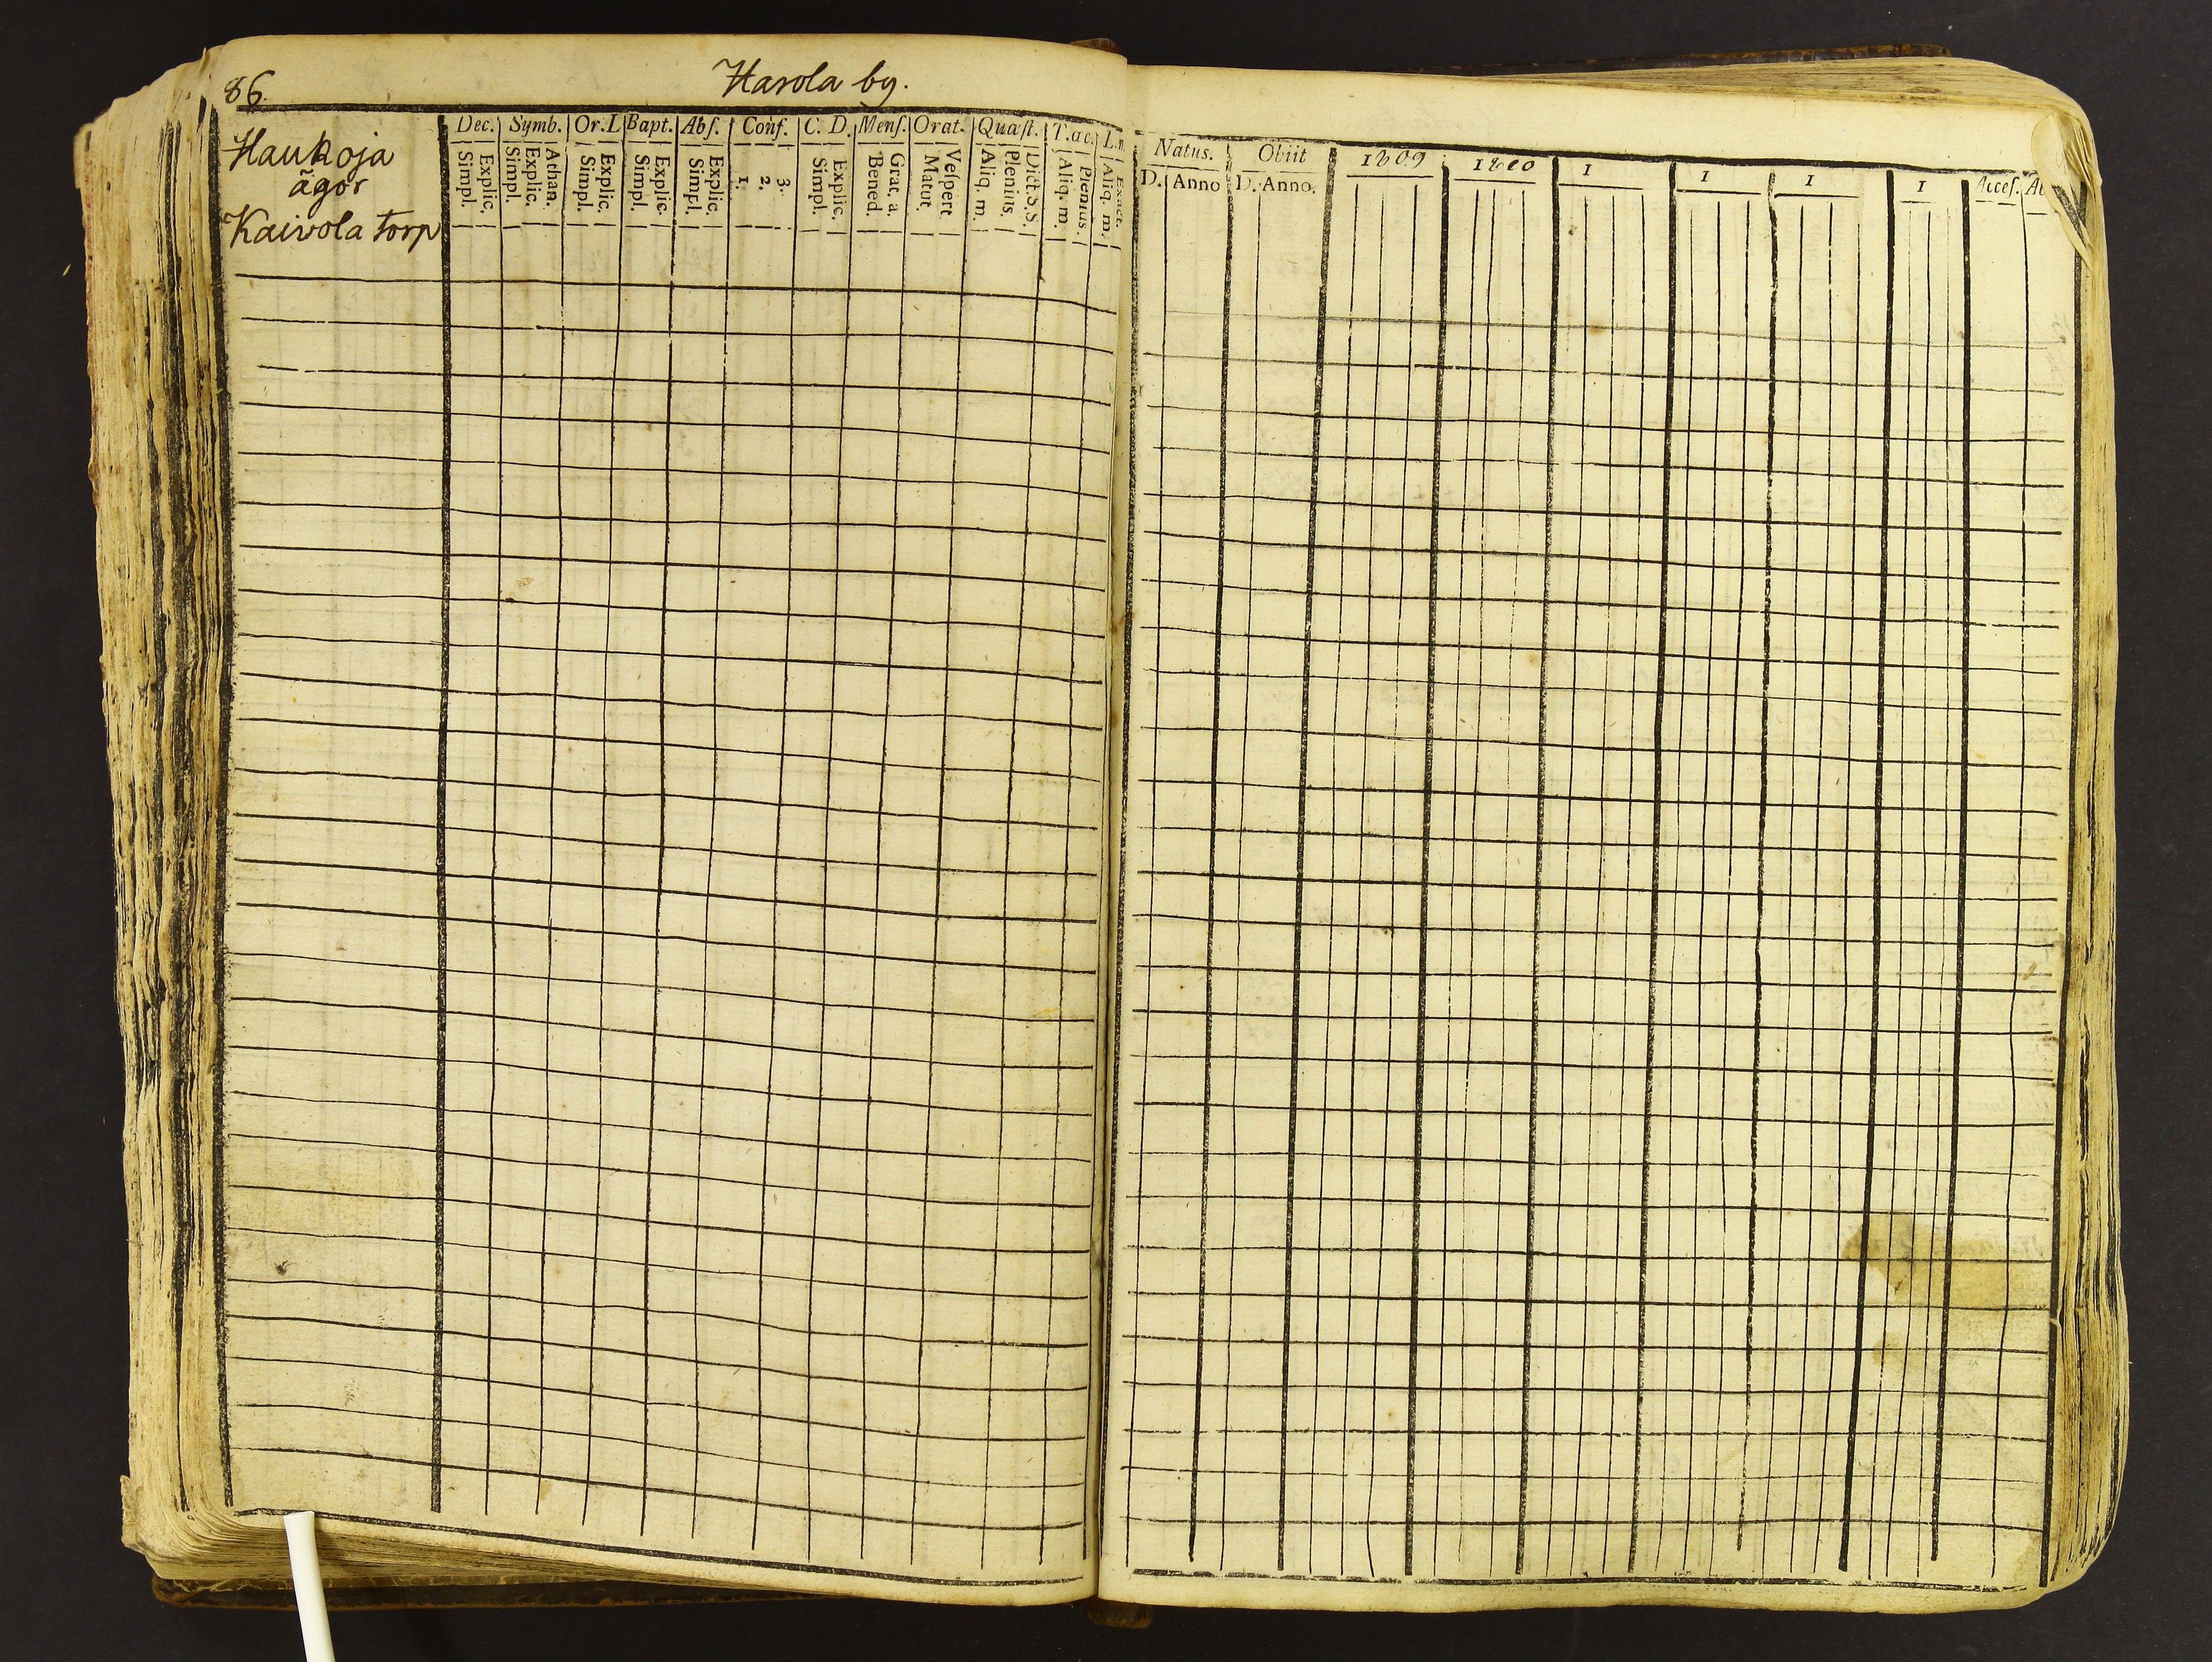 86.
Harola by.
Haukoja
ägor
Kaivola torp
Dec. Symb. Or. L Bapt. Abſ. Conf. C. D. Menſ. Orat. Quæſt. T. ac. L. n
Simpl. Explic. Simpl. Explic. Athan. Simpl. Explic. Simpl. Explic. Simpl. Explic. 1. 2. 3. Simpl. Explic. Bened. Grat. a. Matut. Veſpert. Aliq. m. Plenius. Dict. S. S. Aliq. m. Plenius. Aliq. m. Exact.
Natus. Obiit 1809 1810 1 1 1 1 Acceſ.
D. Anno D. Anno.